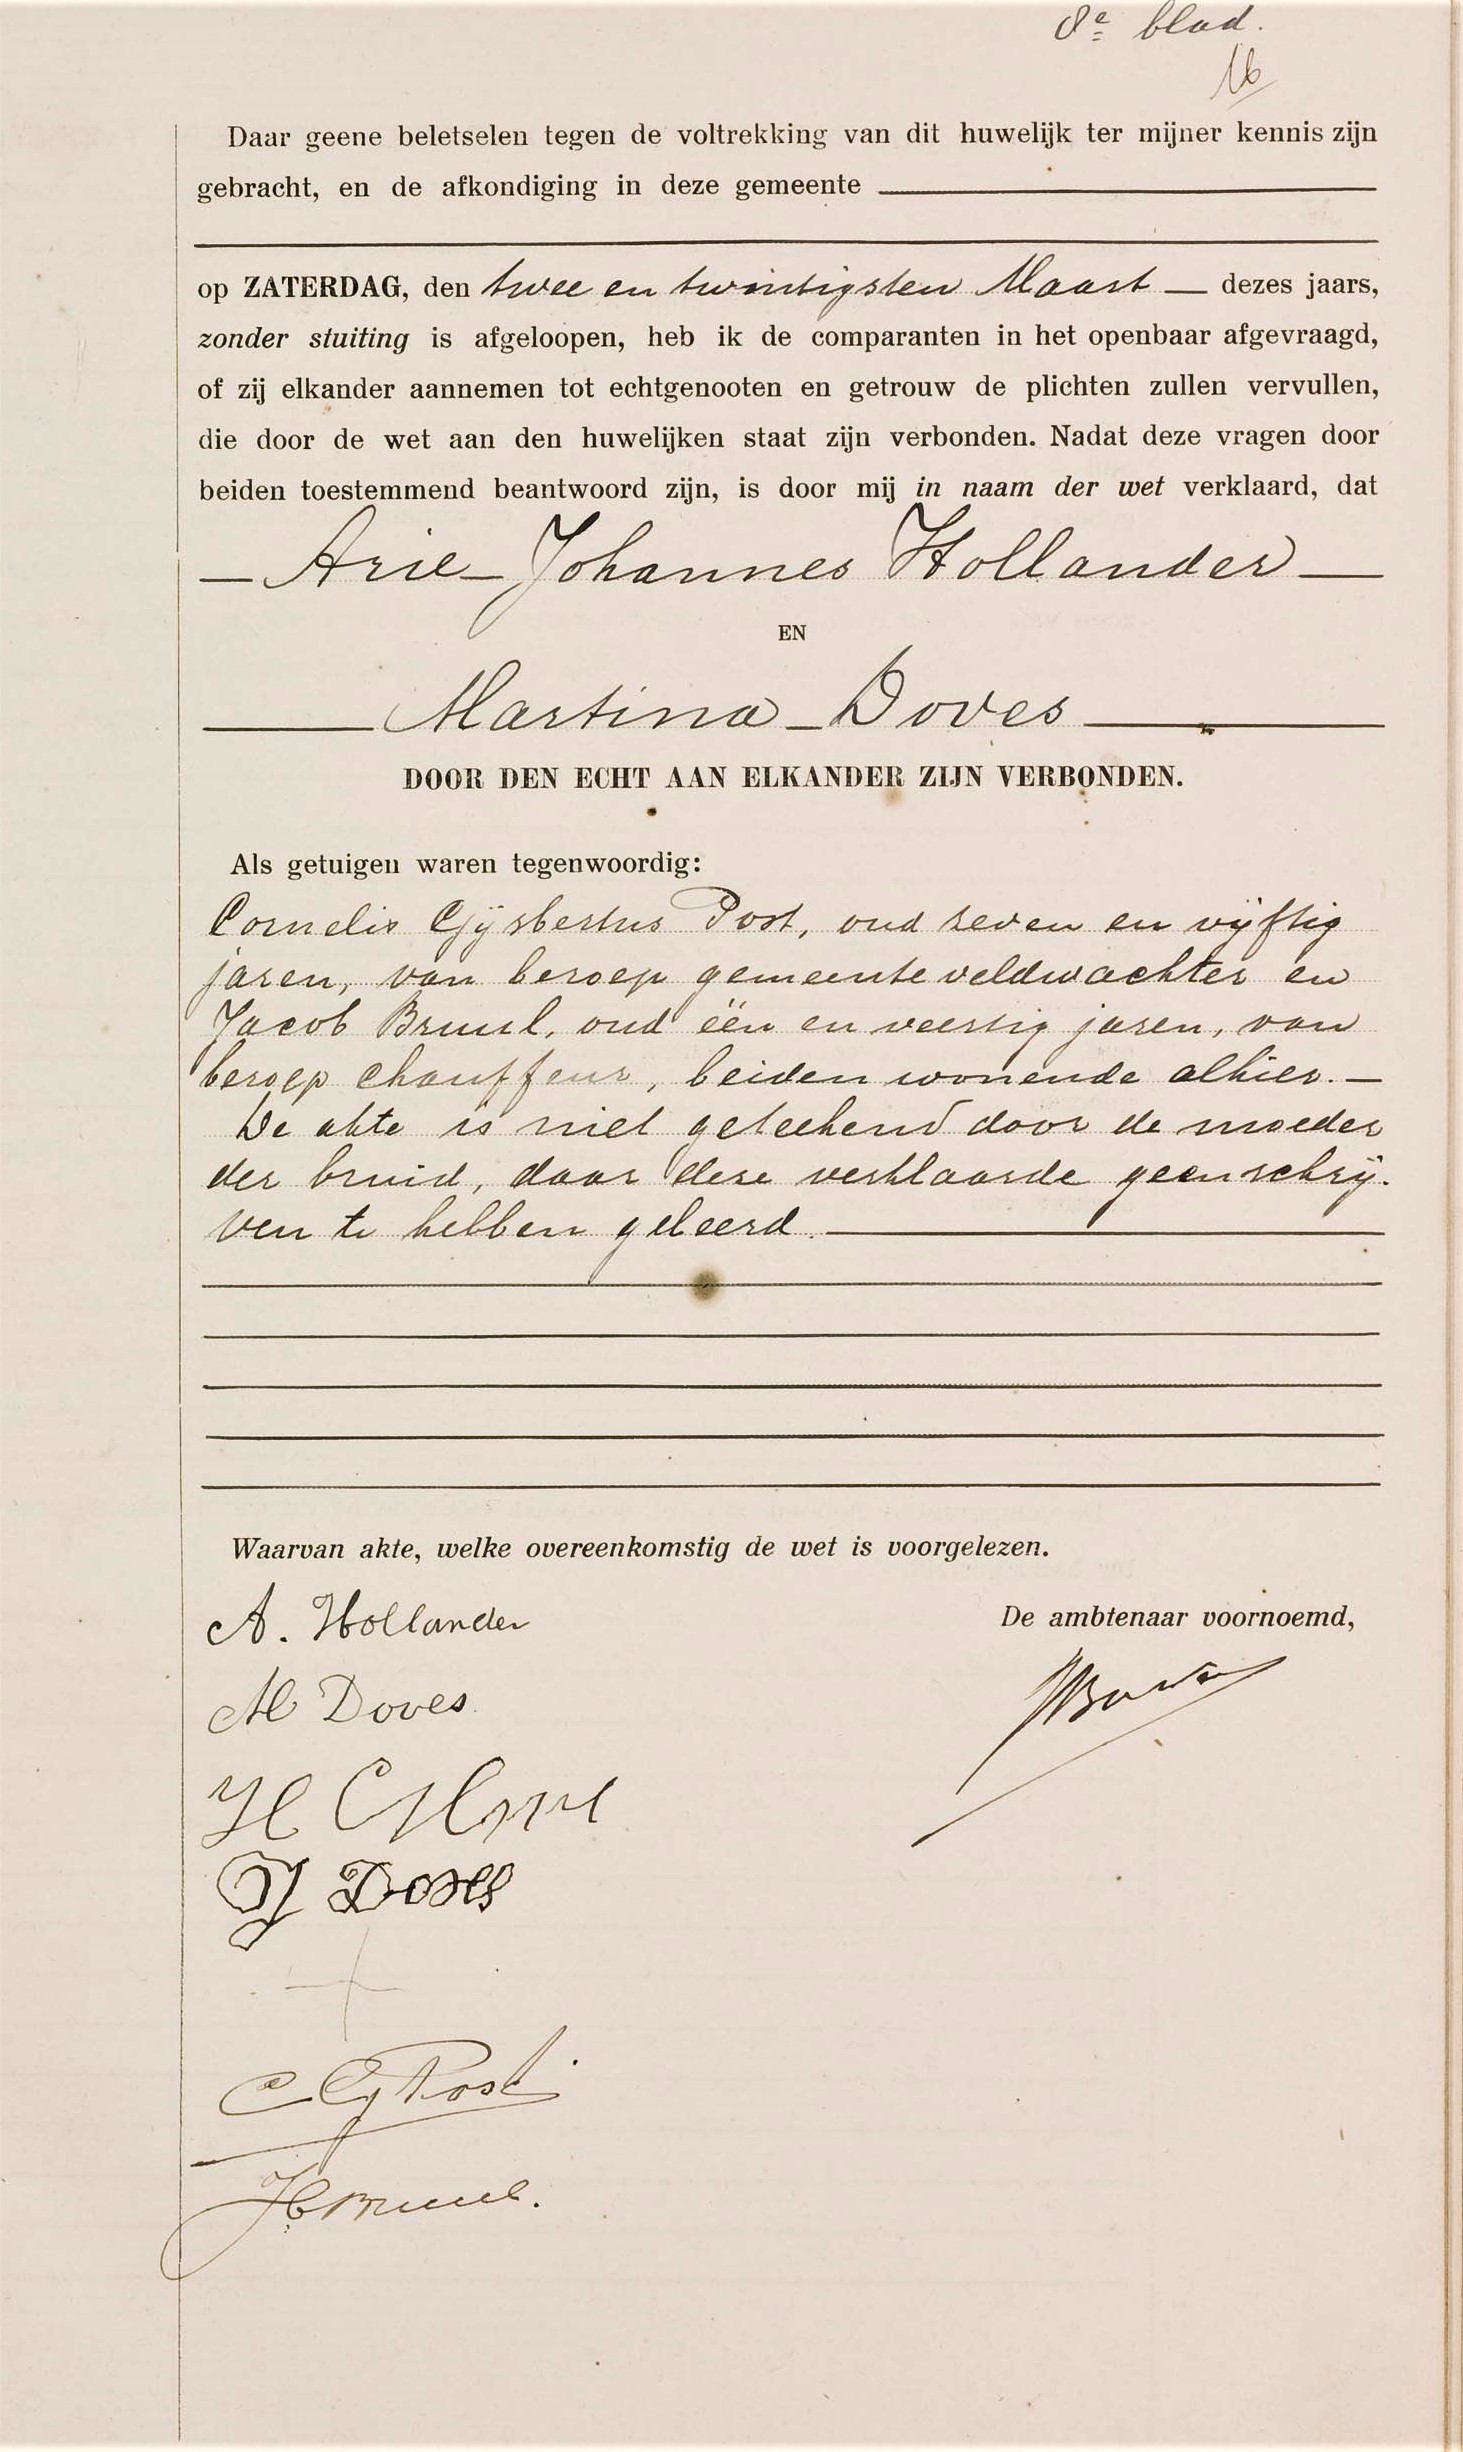 8e blad.
16
Daar geene beletselen tegen de voltrekking van dit huwelijk ter mijner kennis zijn
gebracht, en de afkondiging in deze gemeente
op ZATERDAG, den twee en twintigsten Maart — dezes jaars,
zonder stuiting is afgeloopen, heb ik de comparanten in het openbaar afgevraagd,
of zij elkander aannemen tot echtgenooten en getrouw de plichten zullen vervullen,
die door de wet aan den huwelijken staat zijn verbonden. Nadat deze vragen door
beiden toestemmend beantwoord zijn, is door mij in naam der wet verklaard, dat
— Arie Johannes Hollander —
EN
Martina Doves
DOOR DEN ECHT AAN ELKANDER ZIJN VERBONDEN.
Als getuigen waren tegenwoordig:
Cornelis Gijsbertus Post, oud zeven en vijftig
jaren, van beroep gemeenteveldwachter en
Jacob Bruul, oud één en veertig jaren, van
beroep chauffeur, beiden wonende alhier. —
De akte is niet geteekend door de moeder
der bruid, daar deze verklaarde geen schrij-
ven te hebben geleerd.
Waarvan akte, welke overeenkomstig de wet is voorgelezen.
De ambtenaar voornoemd,
A. Hollander
M Doves
J Doves
C G Post
J Bruul.